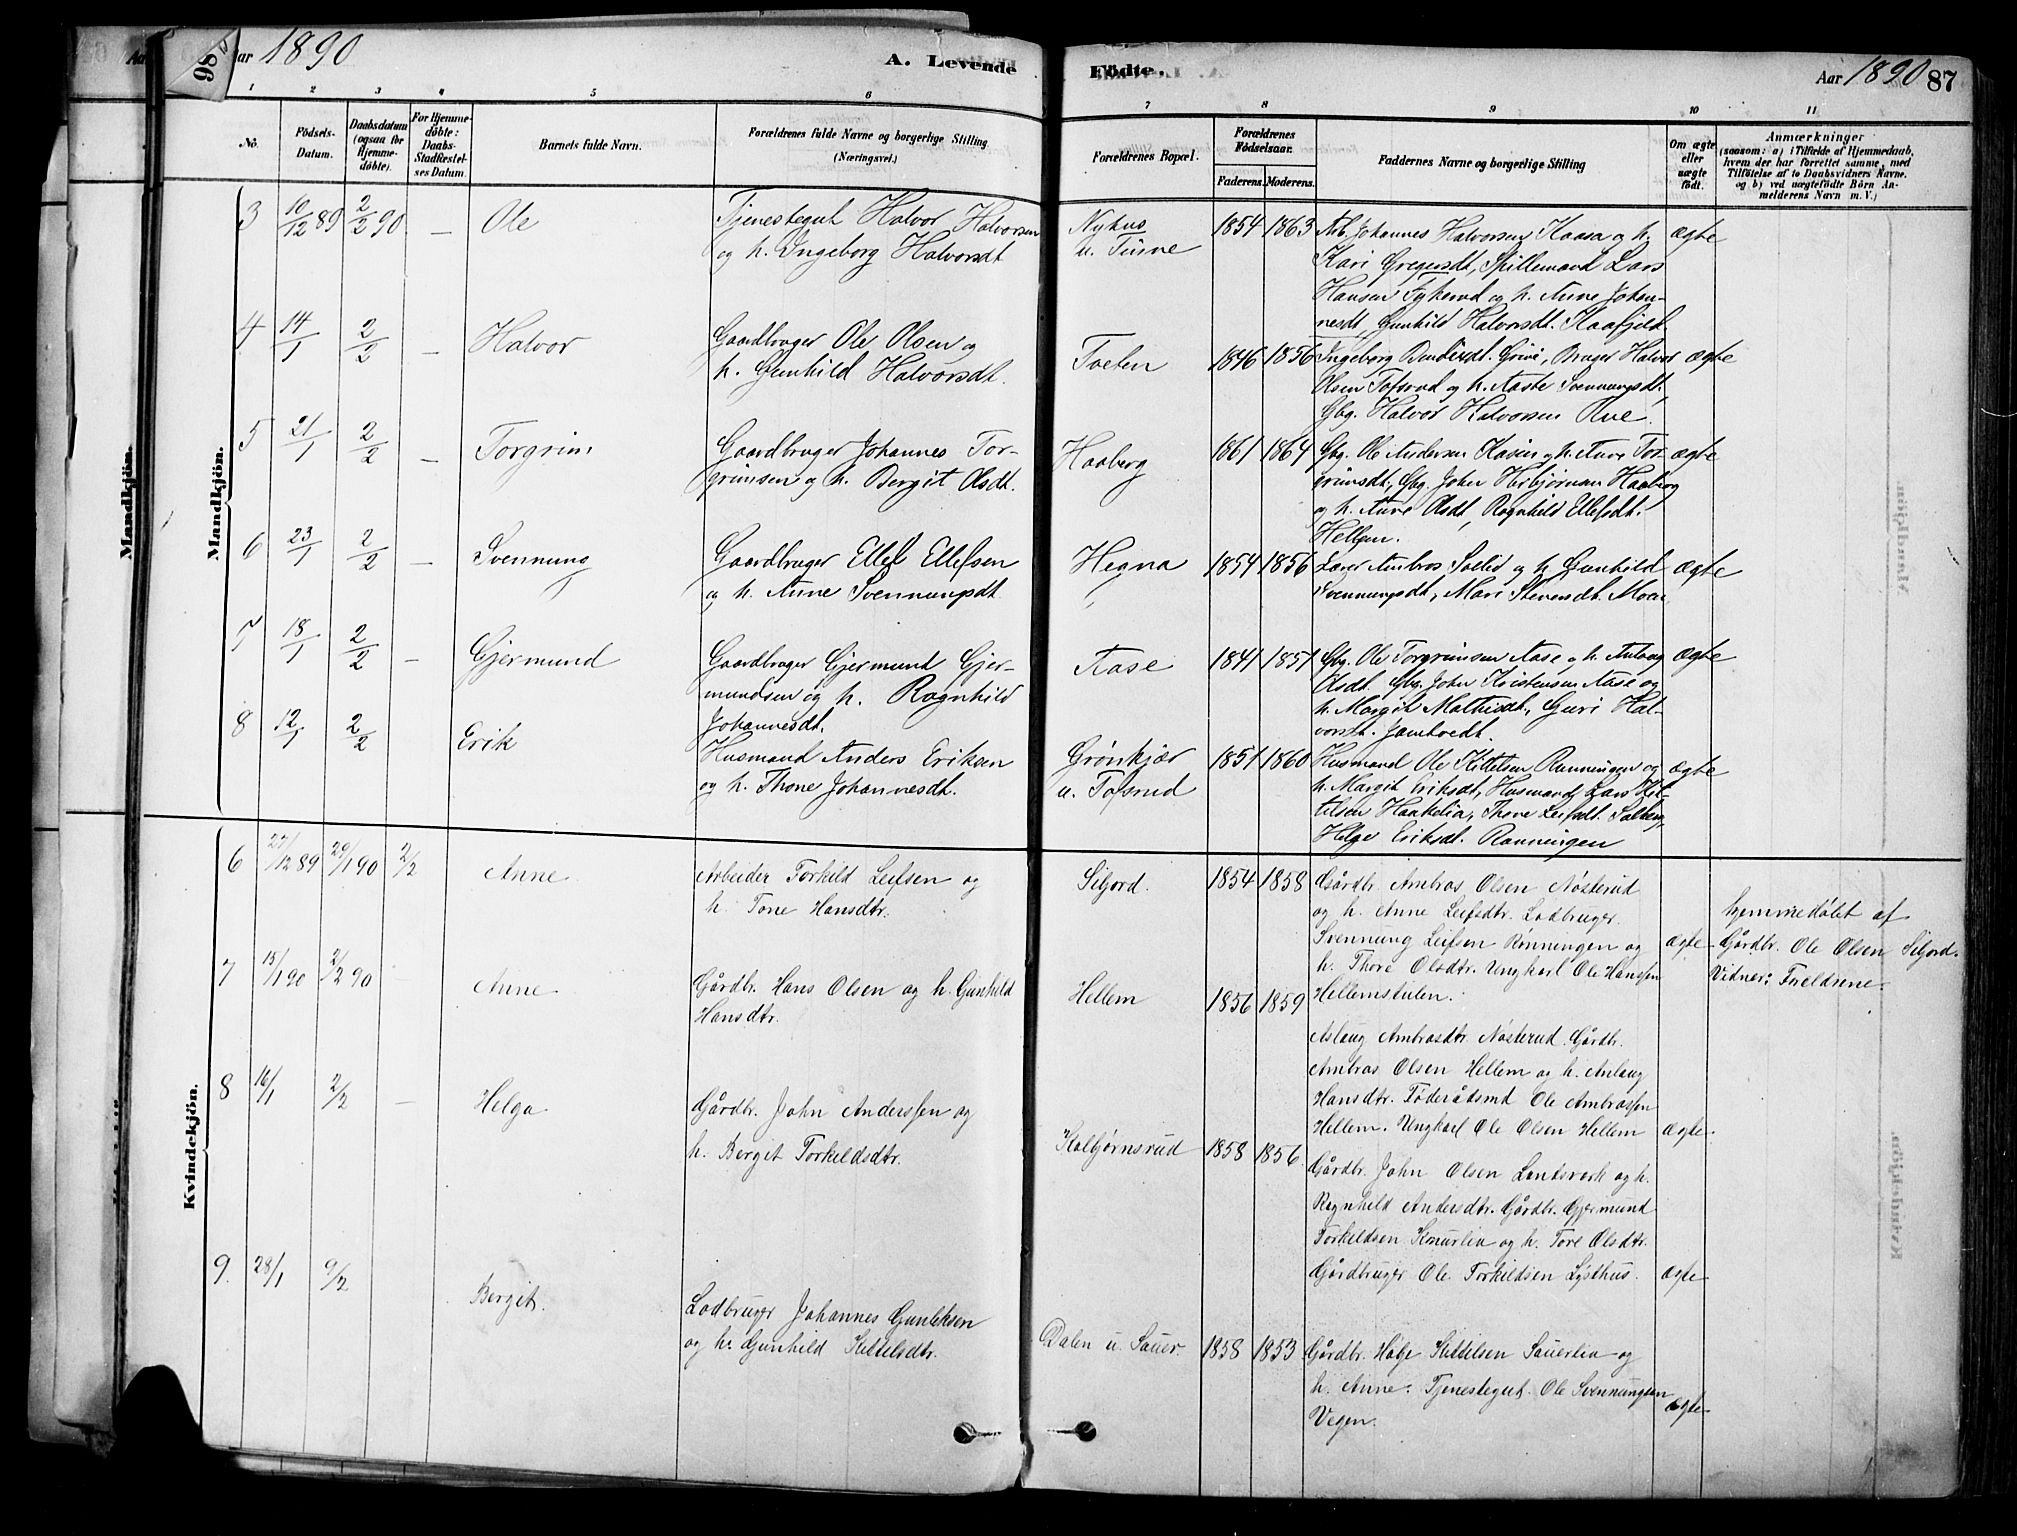 98
Aar 1890
A. Levende
Födte.
Aar 1890 87
1 2 3 4 5 6 7 8 9 10 11
No.
Födsels-
Datum.
Daabsdatum
(ogsaa for
Hjemme-
döbte).
For Hjemme-
döbte:
Daabs-
Stadfæstel-
ses Datum.
Barnets fulde Navn.
Forældrenes fulde Navne og borgerlige Stilling
(Næringsvei.)
Forældrenes Bopæl.
Forældrenes
Födselsaar.
Faderens. Moderens.
Faddernes Navne og borgerlige Stilling
Om ægte
eller
uægte
födt.
Anmærkninger
(saasom: a) i Tilfælde af Hjemmedaab,
hvem der har forrettet samme, med
Tilföielse af to Daabsvidners Navne.
og b) ved uægtefödte Börn An-
melderens Navn m. V.)
Mandkjön.
Mandkjön.
3 10/12 89 2/2 90 — Ole
Tjenestegut Halvor Halvorsen
og h. Ingeborg Halvorsdt
Nyhus
u. Tinne
1854 1863
Arb. Johannes Halvorsen Kaasa og h.
Kari Gregersdt, Spillemand Lars
Hansen og h. Anne Johan-
nesdt, Gunhild Halvorsdt.
ægte
4 14/1 2/2 — Halvor
Gaardbruger Ole Olsen og
h. Gunhild Halvorsdt.
Tveten
1846 1856
Ingeborg, Bruger Halvor
Olsen Tofsrud og h. Aaste Svennungsdt,
Gbg. Halvor Halvorsen
ægte
5 21/1 2/2 — Torgrim
Gaardbruger Johannes Tor-
grimsen og h. Bergit Olsdt.
Haaberg
1861 1864
Gbg. Ole Andersen Kasin og h. Anne Tor-
grimsdt, Gbg. John Herbjørnsen Haaberg
og h. Anne Olsdt, Ragnhild Ellefsdt.
Hellem.
ægte
6 23/1 2/2 — Svennung
Gaardbruger Ellef Ellefsen
og h. Anne Svennungsdt
Hegna
1854 1856
Lærer Ambros Solid og h. Gunhild
Svennungsdt, Mari Stevensdt. Moen
ægte
7 18/1 2/2 — Gjermund
Gaardbruger Gjermund Gjer-
mundsen og h. Ragnhild
Johannesdt.
Aase
1841 1851
Gbg. Ole Torgrimsen Aase og h. Anlaug
Olsdt. Gbg. John Kristensen Aase og
h. Margit Mathisdt, Guri Hal-
vorsdt.
ægte
8 12/1 2/2 Erik
Husmand Anders Eriksen
og h. Thone Johannesdt.
Grönkjær
u. Tofsrud
1851 1860
Husmand Ole Kittelsen Rønningen og
h. Margit Eriksdt, Husmand Lars Kit-
telsen Haakelia, Thone Leifsdt.
Helge Eriksdt. Rønningen
ægte
Kvindekjön.
6 27/12 89 29/1 90 2/2 Anne
Arbeider Torkild Leifsen og
h. Tone Hansdtr.
Siljord.
1854 1858
Gårdbr. Ambros Olsen Nösterud
og h. Anne Leifsdtr. Lodbruger
Svennung Leifsen Rönningen og
h. Thore Olsdtr. Ungkarl Ole Hansen
Hellemstulen.
ægte
hjemmedöbt af
Gårdbr. Ole Olsen Siljord.
Vidner: Foreldrene.
7 15/1 90 2/2 90 Anne
Gårdbr. Hans Olsen og h. Gunhild
Hansdtr.
Hellem
1856 1859
Aslaug Ambrosdtr. Nösterud. Gårdbr.
Ambros Olsen Hellem og h. Anlaug
Hansdtr. Föderådsmd Ole Ambrossen
Hellem. Ungkarl Ole Olsen Hellem
ægte.
8 16/1 2/2 — Helga
Gårdbr. John Anderssen og
h. Bergit Torkeldsdtr.
Kolbjörnsrud
1858 1856
Gårdbr. John Olsen Landsverk og h.
Ragnhild Andersdtr. Gårdbr. Gjermund
Torkeldsen Knurlia og h. Tore Olsdtr.
Gårdbruger Ole Torkildsen Lysthus.
ægte
9. 28/1 9/2 Bergit.
Lodbruger Johannes Gunleksen
og h. Gunhild Kittelsdtr.
Dalen u. Sauer.
1858 1853
Gårdbr. Helge Kittelsen Sauerlia og
h. Anne. Tjenestegut. Ole Svennungsen
Vegen.
ægte